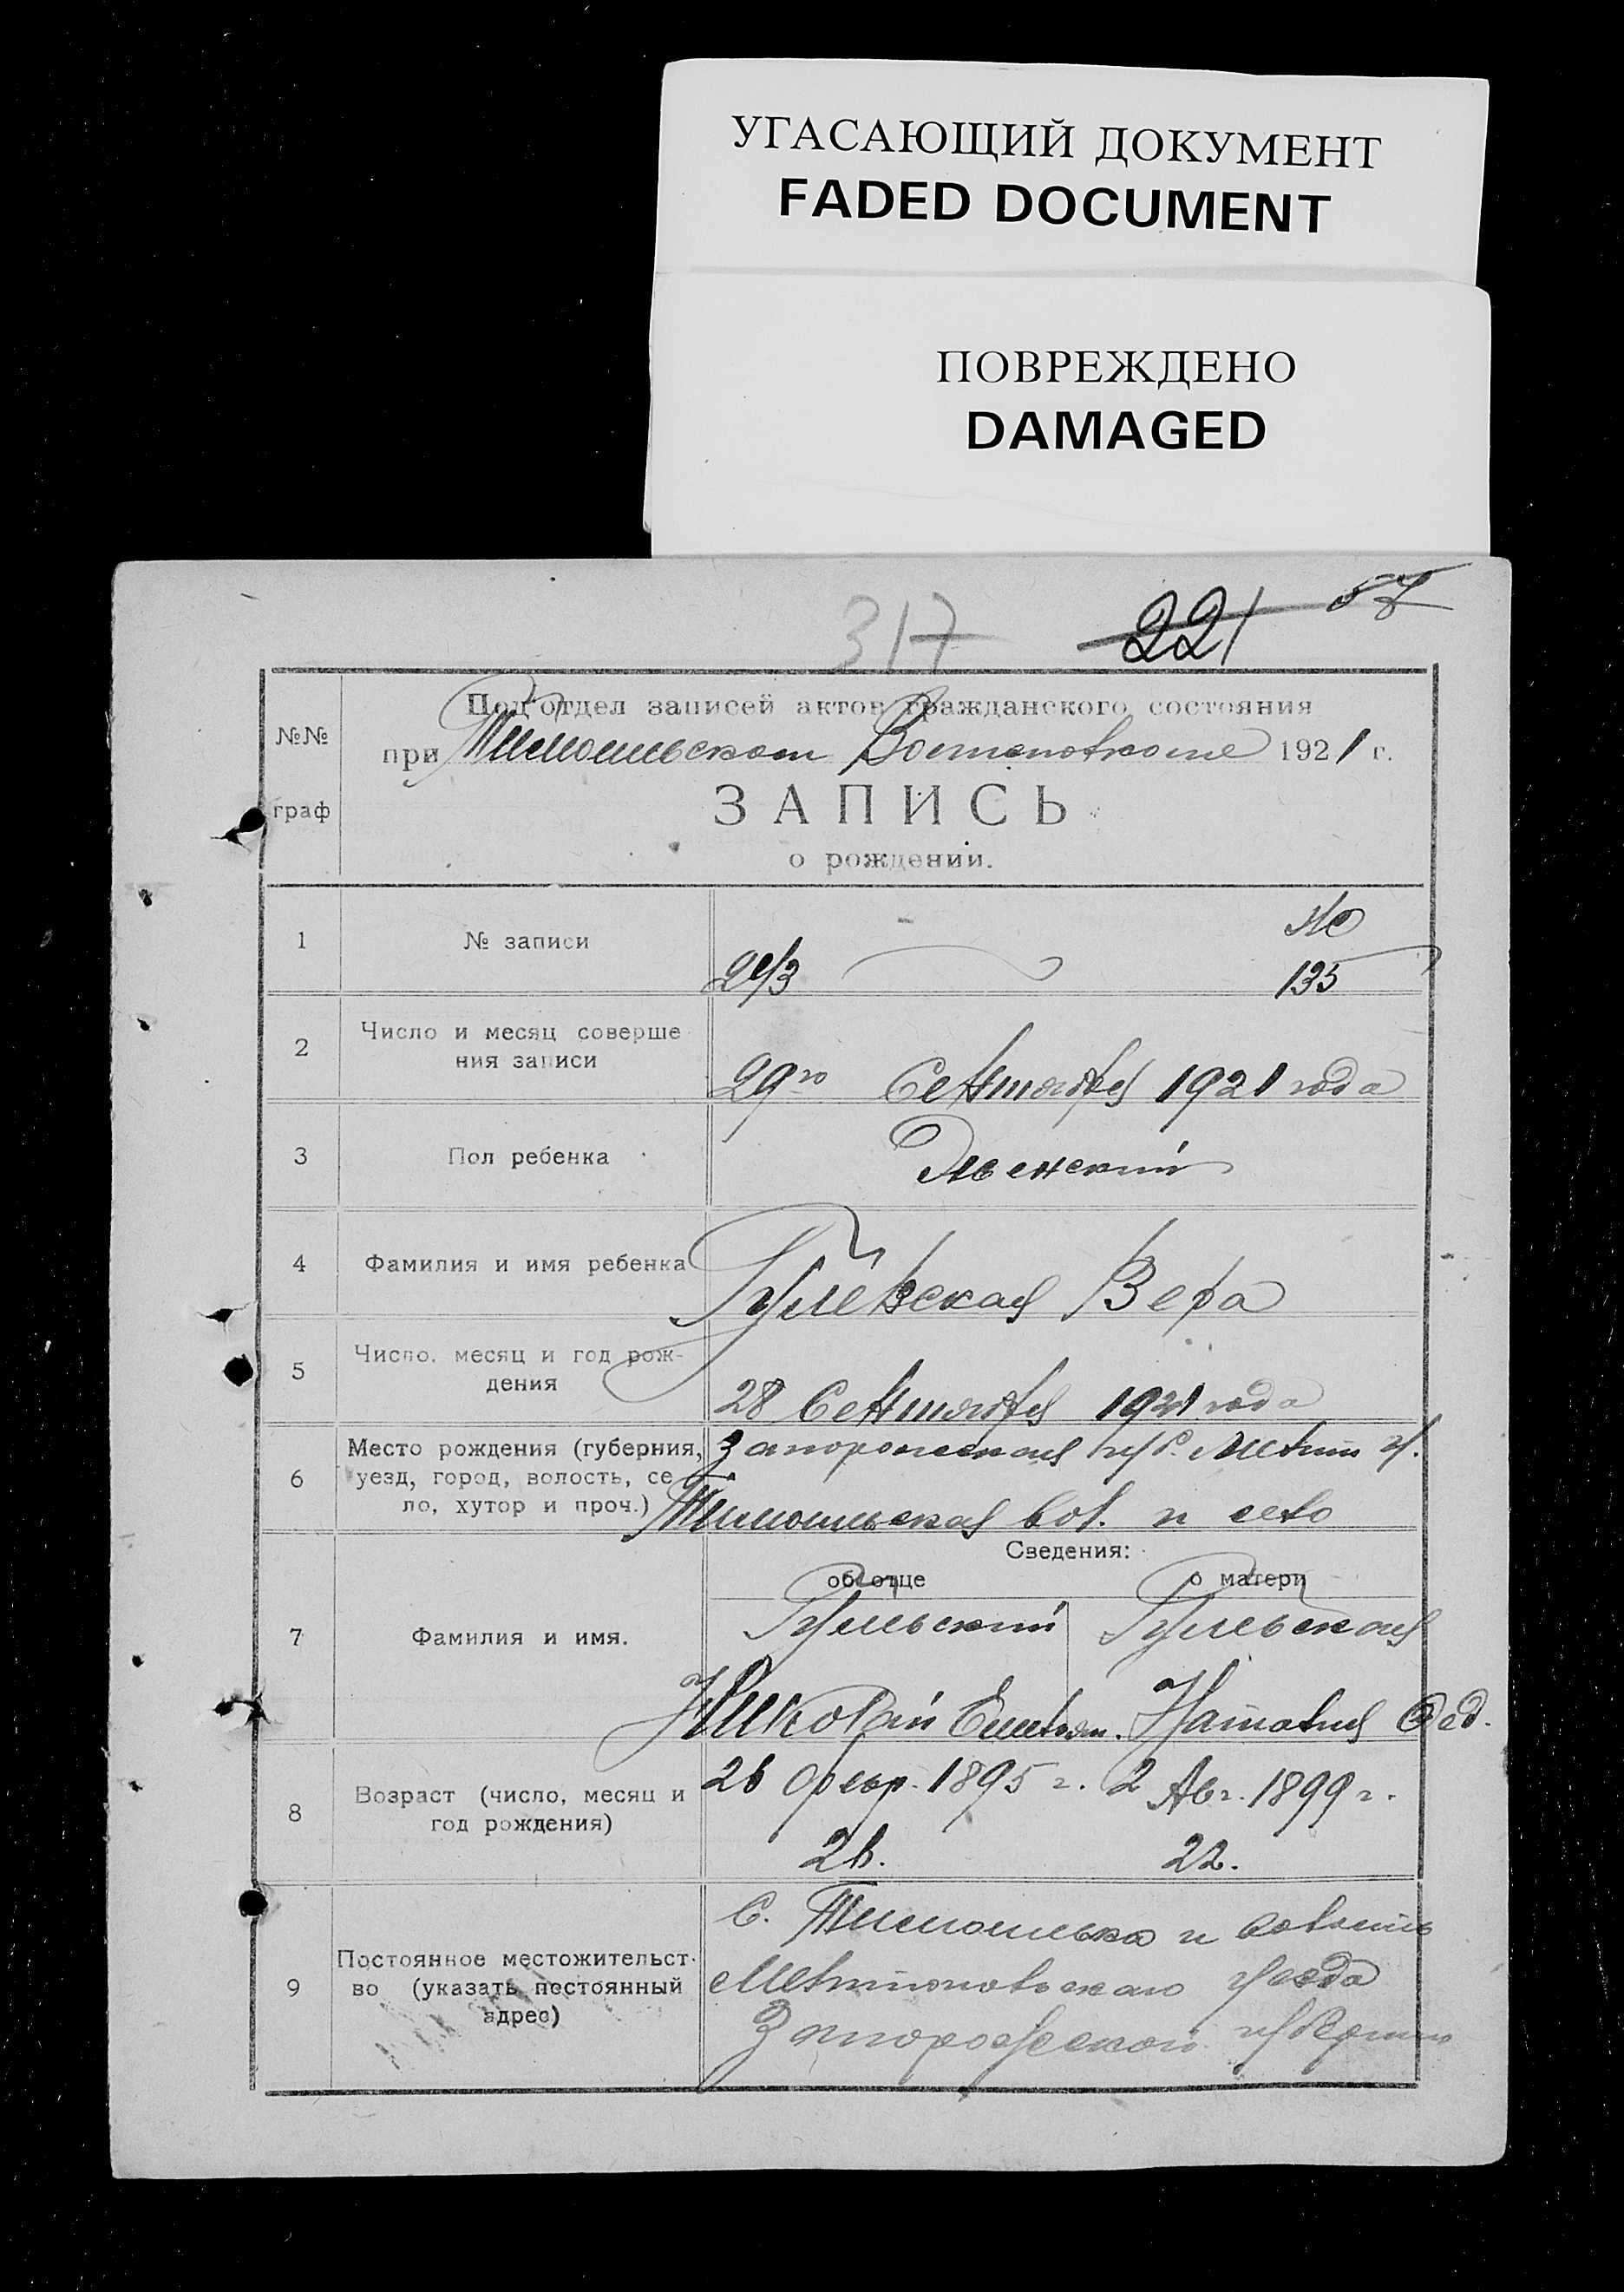 УГАСАЮЩИЙ ДОКУМЕНТ
FADED DOCUMENT
ПОВРЕЖДЕНО
DAMAGED
317 221 57
№№
граф
Под'отдел записей актов гражданского состояния
при Тимошевском 1921 г.
ЗАПИСЬ
о рождении.
1
№ записи
№
243 135
2
Число и месяц соверше
ния записи
29го Сентября 1921 года
3
Пол ребенка
Женский
4
Фамилия и имя ребенка
Гулевская Вера
5
Число, месяц и год рож-
дения
28 Сентября 1921 года
6
Место рождения (губерния,
уезд, город, волость, се
ло, хутор и проч.)
Запорожская губ. Мелит. у.
Тимошевская вол. и село
Сведения:
об отце о матери
7
Фамилия и имя.
Гулевский Гулевская
Николай Емельян. Наталия Фед.
8
Возраст (число, месяц и
год рождения)
26 февр. 1895 г. 2 Авг. 1899 г.
26. 22.
9
Постоянное местожительст-
во (указать постоянный
адрес)
С. Тимошевка и волость
Мелитопольского уезда
Запорожской губернии